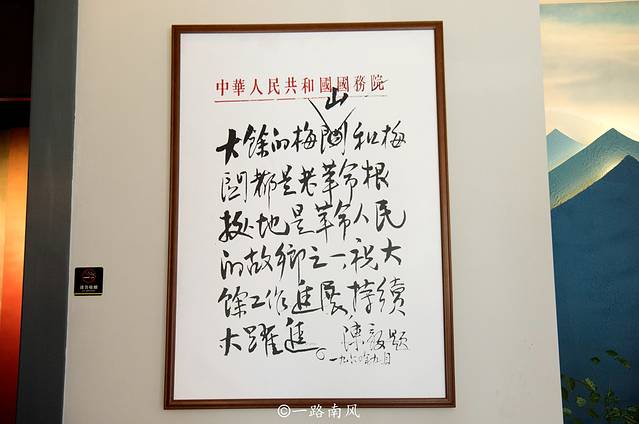 中華人民共和國國務院
大餘的梅山和梅
関都是老革命根
据地是革命人民
的故鄉之一祝大
餘工作進展持續
大躍進。陳毅題
一九六〇年九月
请勿吸烟
©一路南风